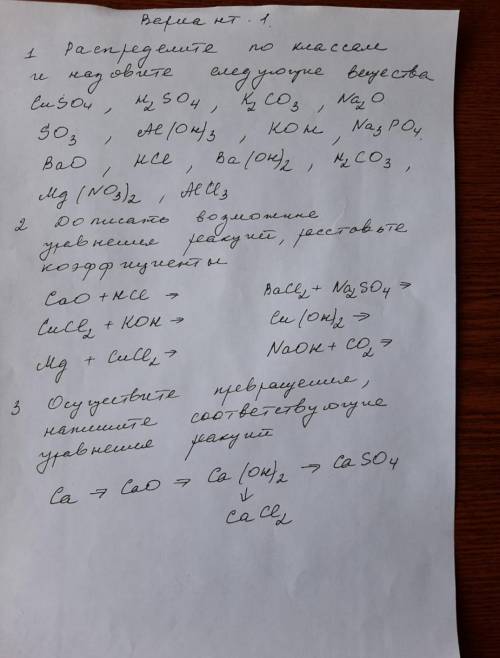 Вариант. 1.
1 Распределите по классам
и назовите следующие вещества
CuSO4 , H2SO4 , K2CO3 , Na2O
SO3 , Al(OH)3 , KOH , Na3PO4.
BaO , HCl , Ba(OH)2 , H2CO3 ,
Mg(NO3)2 , AlCl3
2 Дописать возможные
уравнения реакций, расставьте
коэффициенты
CaO + HCl → BaCl2 + Na2SO4 →
CuCl2 + KOH → Cu(OH)2 →
Mg + CuCl2 → NaOH + CO2 →
3 Осуществите превращения,
напишите соответствующие
уравнения реакций
Ca → CaO → Ca(OH)2 → CaSO4
↓
CaCl2